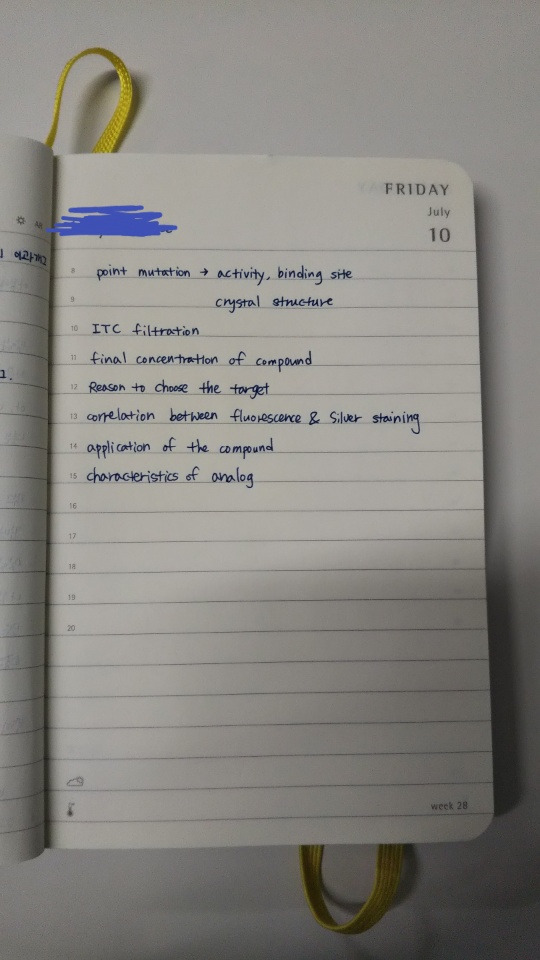 FRIDAY
July
10
8 point mutation → activity, binding site
9 crystal structure
10 ITC filtration
11 final concentration of compound
12 Reason to choose the target
13 correlation between fluorescence & Silver staining
14 application of the compound
15 characteristics of analog
16
17
18
19
20
week 28